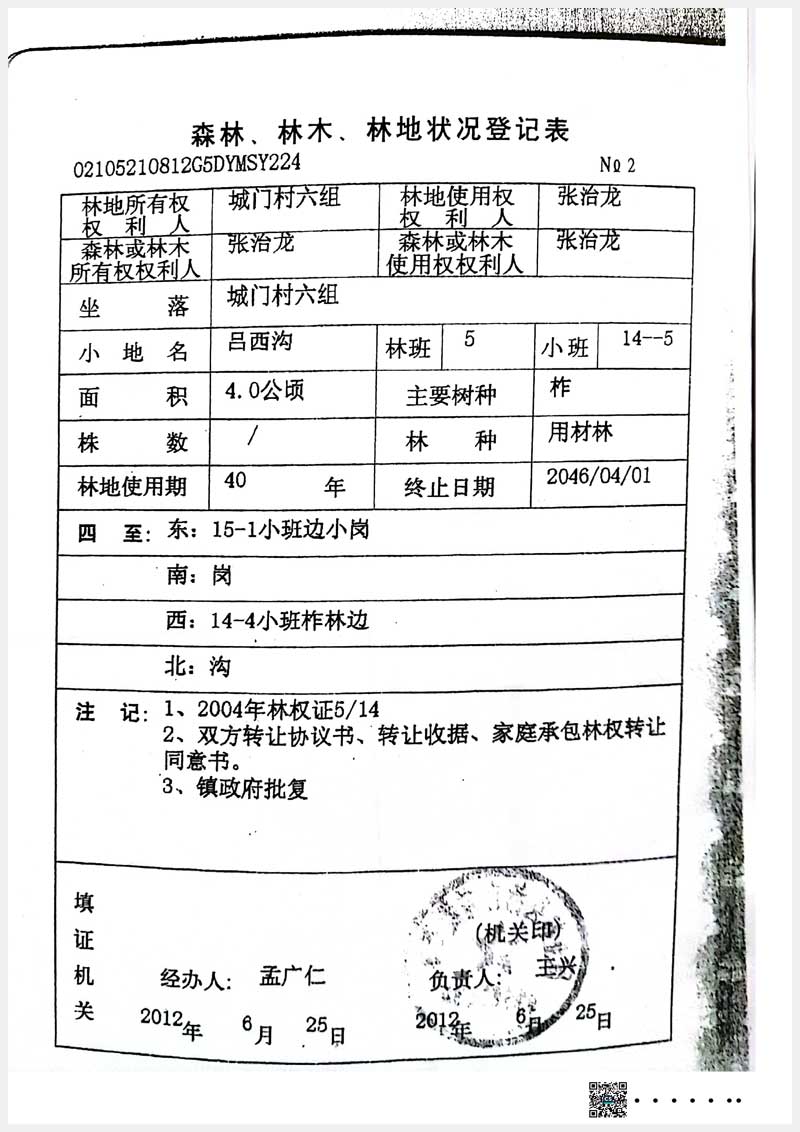 森林、林木、林地状况登记表
02105210812G5DYMSY224 №2
林地所有权权利人 城门村六组 林地使用权权利人 张治龙
森林或林木所有权权利人 张治龙 森林或林木使用权权利人 张治龙
坐落 城门村六组
小地名 吕西沟 林班 5 小班 14--5
面积 4.0公顷 主要树种 柞
株数 / 林种 用材林
林地使用期 40 年 终止日期 2046/04/01
四至: 东: 15-1小班边小岗
南: 岗
西: 14-4小班柞林边
北: 沟
注记: 1、2004年林权证5/14
2、双方转让协议书、转让收据、家庭承包林权转让
同意书。
3、镇政府批复
填证机关
(机关印)
经办人: 孟广仁 负责人: 王兴
2012年 6月 25日 2012年 6月 25日